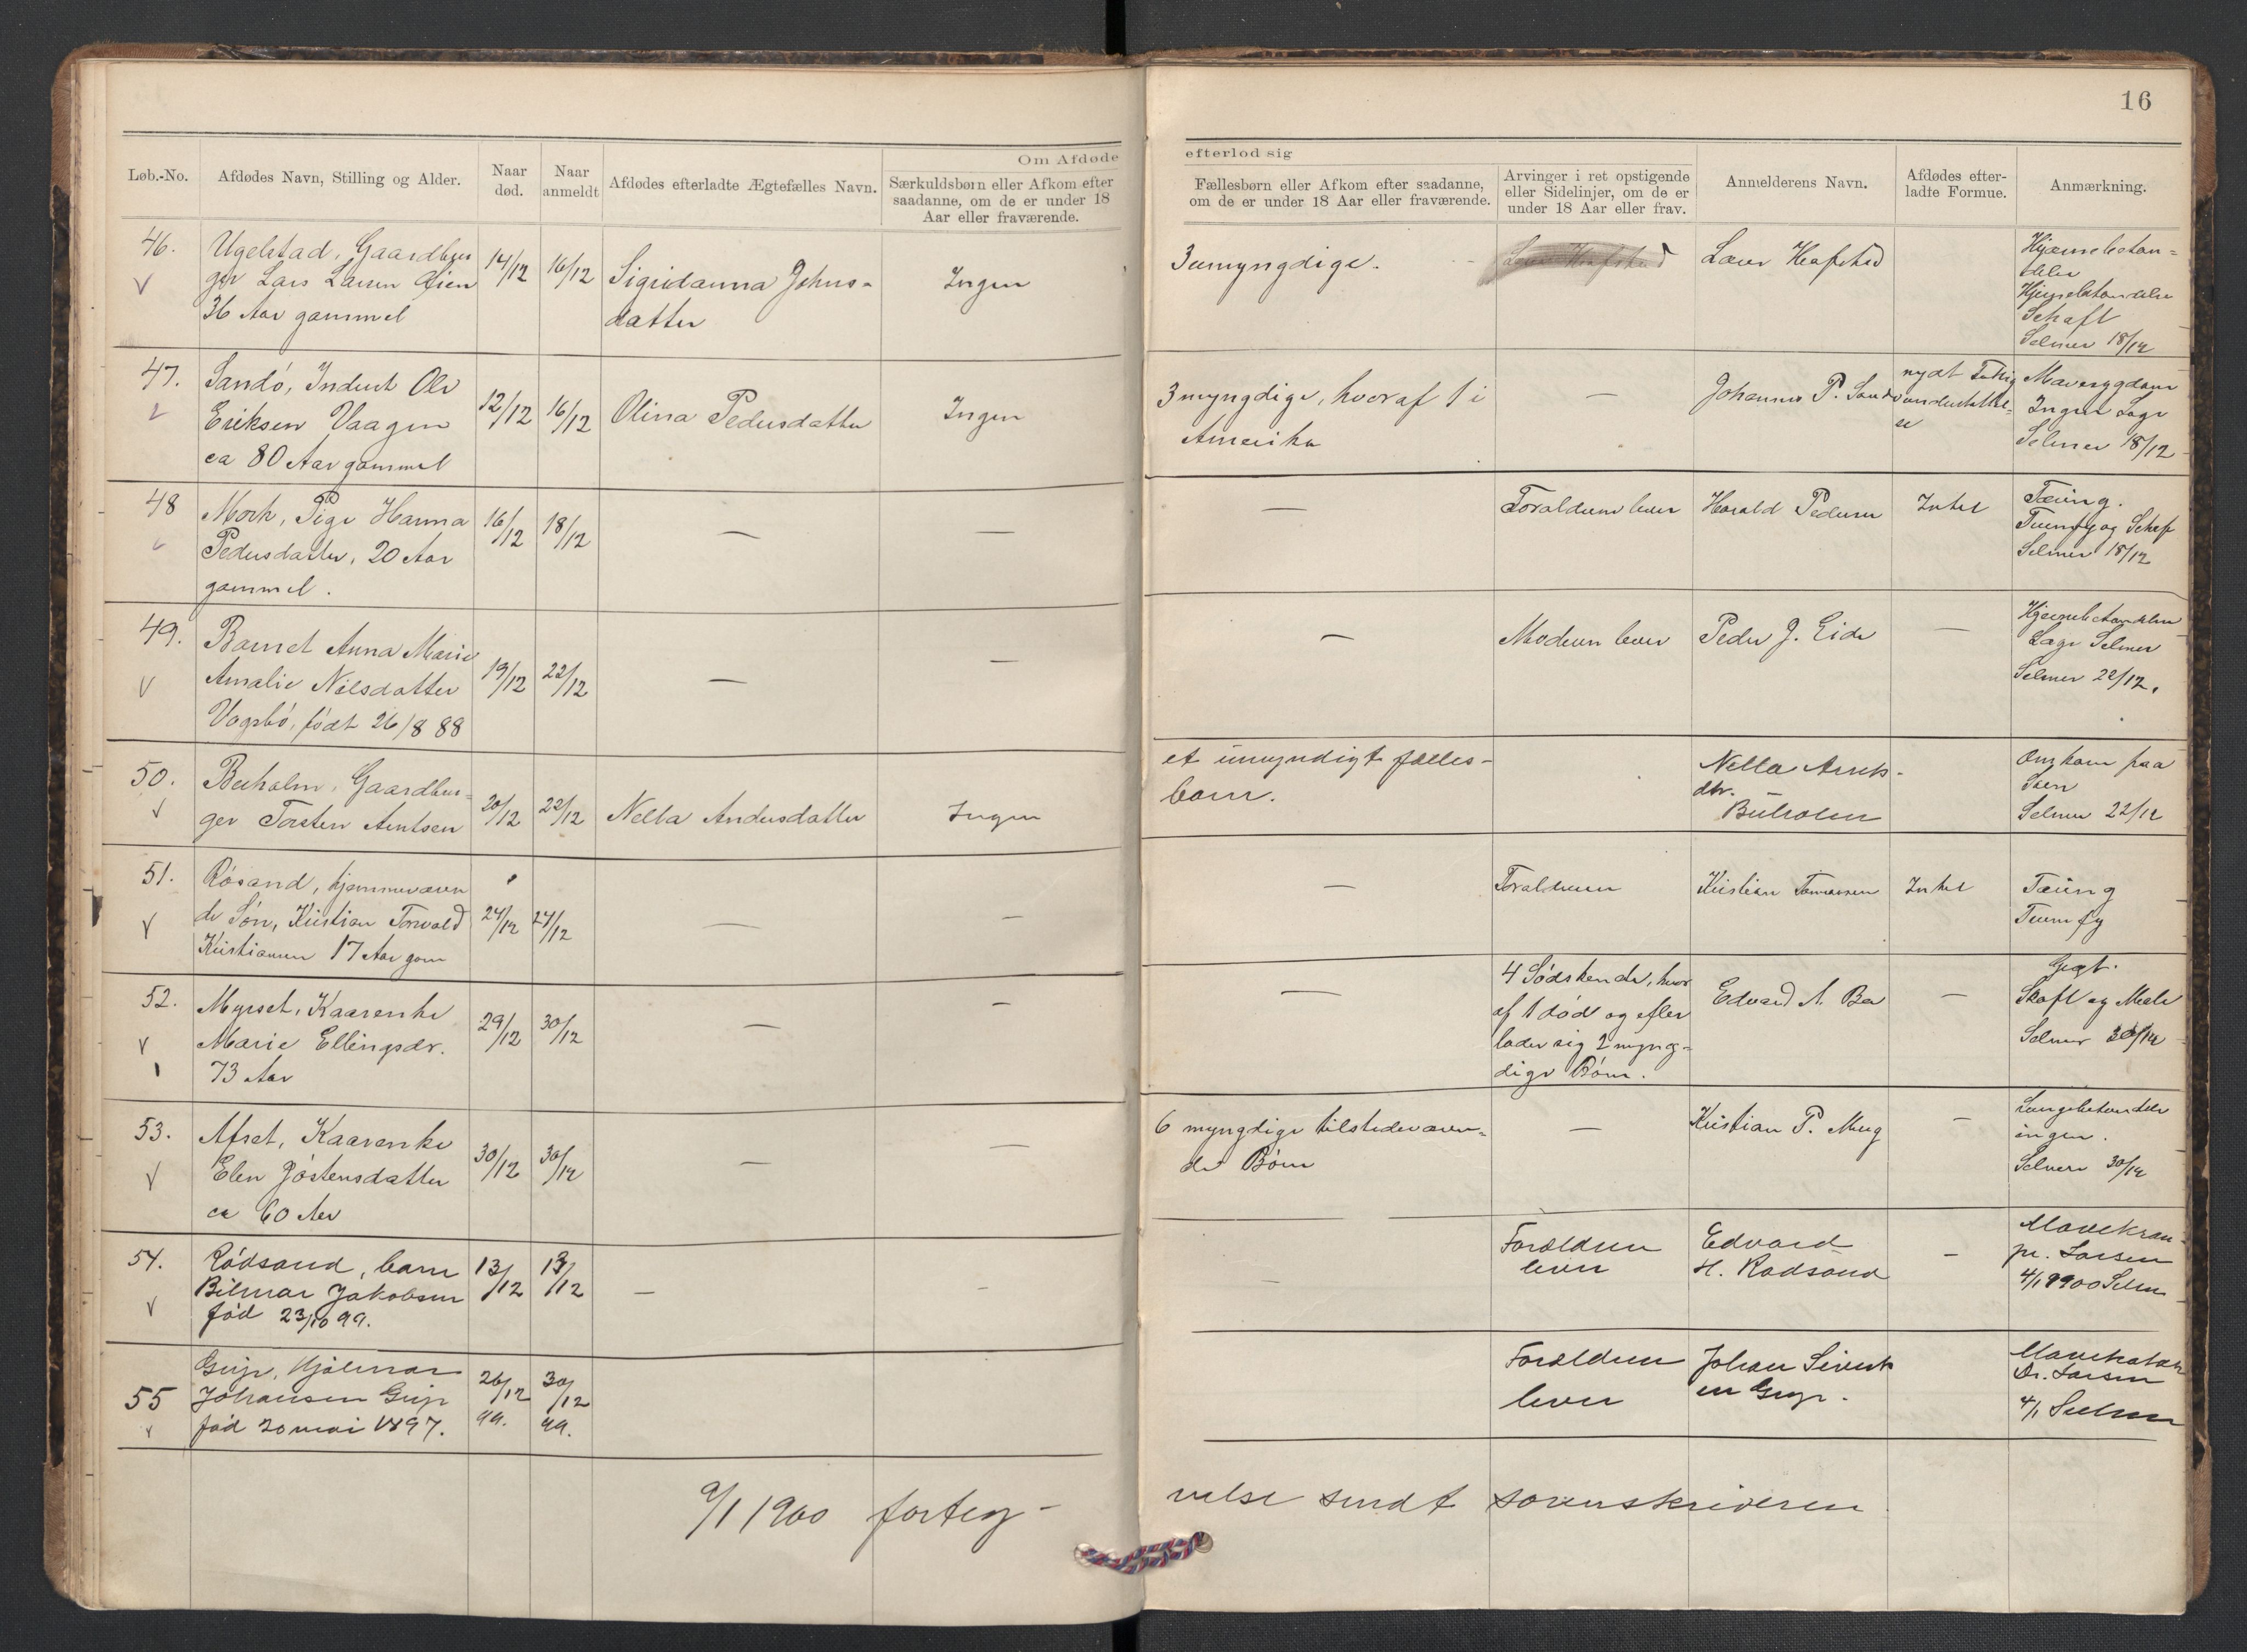 16
Om Afdøde
efterlod sig
Løb.-No.
Afdødes Navn, Stilling og Alder.
Naar død.
Naar anmeldt
Afdødes efterladte Ægtefælles Navn.
Særkuldsbørn eller Afkom efter
saadanne, om de er under 18
Aar eller fraværende.
Fællesbørn eller Afkom efter saadanne,
om de er under 18 Aar eller fraværende.
Arvinger i ret opstigende
eller Sidelinjer, om de er
under 18 Aar eller frav.
Anmelderens Navn.
Afdødes efter-
ladte Formue.
Anmærkning.
46.
V
Ugelstad, Gaardbru
ger Lars Larsen
36 Aar gammel
14/12
16/12
Sigridanna Johns-
datter
Ingen
3 umyngdige.
Lars
Hjernebetæn-
delse
Hjernebetændelse
Schaft
Selmer 18/12
47.
V
Sandö, Inderst Ole
Eriksen Vaagen
ca 80 Aar gammel
12/12
16/12
Olina Pedersdatter
Ingen
3 myngdige, hvoraf 1 i
Amerika
—
Johannes P. Sandö
nydt Fattig
understøttel-
se
Mavesygdom
Ingen Læge
Selmer 18/12
48
V
Mork, Pige Hanna
Pedersdatter, 20 Aar
gammel.
16/12
18/12
—
—
—
Foraldrene lever
Harald Pedersen
Intet
Tæring.
og Schaft
Selmer 18/12
49.
V
Barnet Anna Marie
Amalie Nilsdatter
Vagsbö, födt 26/8 88
19/12
22/12
—
—
—
Moderen lever
Peder J. Eide
—
Hjernebetændelse
Læge Selmer
Selmer 22/12.
50.
V
Gaardbru-
ger Torsten Arntsen
20/12
22/12
Nella Andersdatter
Ingen
et umyndigt fælles-
barn.
Nella
dtr.
Omkom paa
Söen
Selmer 22/12
51.
V
Rösand, hjemmeværen
de Sön, Kristian Torvald
Kristiansen 17 Aar gam
24/12
27/12
—
—
—
Foraldrene
Kristian
Intet
Tæring
52.
V
Myrset, Kaarenke
Marie Ellingsdr.
73 Aar
29/12
30/12
—
—
—
4 Södskende, hvor
af 1 död og efter
lader sig 2 myng-
dige Börn.
Edvard A. Bø
—
Gegt.
Skaft og Mele
Selmer 30/12
53.
V
Afset, Kaarenke
Elen Jöstensdatter
ca 60 Aar
30/12
30/12
—
—
6 myngdige tilstedeværen-
de Börn
—
Kristian P.
—
Lungebetændelse
ingen.
Selmer 30/12
54.
V
Rödsand, barn
Bilmar Jakobsen
född 23/10 99.
13/12
13/12
—
—
—
Forældren
lever
Edvard
H. Rødsand
—
Mavekram-
pe. Larsen
4/1 1900 Selm
55
V
Grip, Hjalmar
Johansen Grip
född 20 mai 1897.
26/12
99.
30/12
99.
Forældren
lever
Johan Sivert
en Grip.
Mavekatar
Dr. Larsen
4/1 Selmer
9/1 1900 forteg-
nelse sendt sorenskriveren